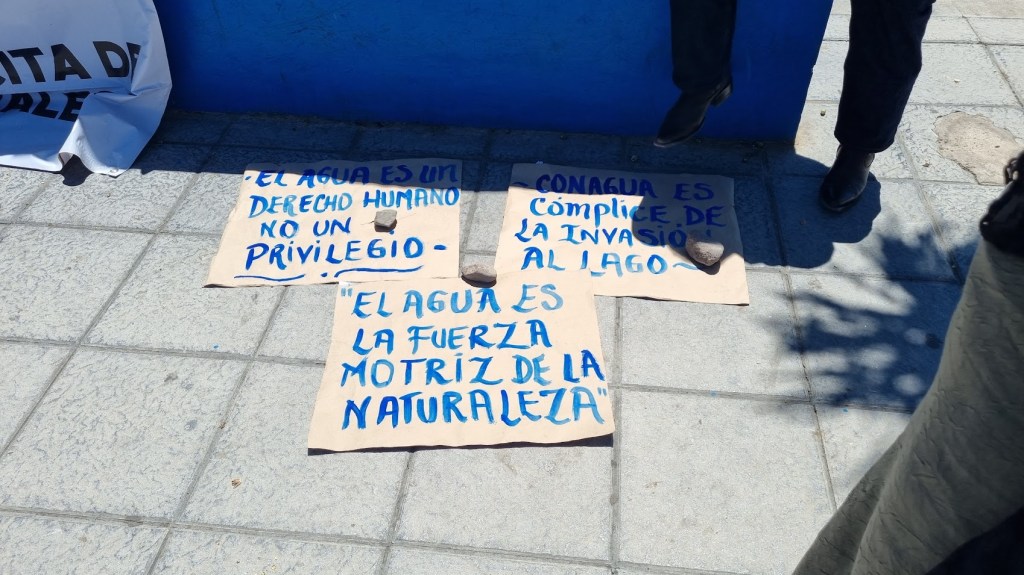 CITA DE
ALES
-EL AGUA ES UN
DERECHO HUMANO
NO UN
PRIVILEGIO-
-CONAGUA ES
CómplICE DE
LA INVASIÓN
AL LAGO~
"EL AGUA ES
LA FUERZA
MOTRíZ DE LA
NATURALEZA"